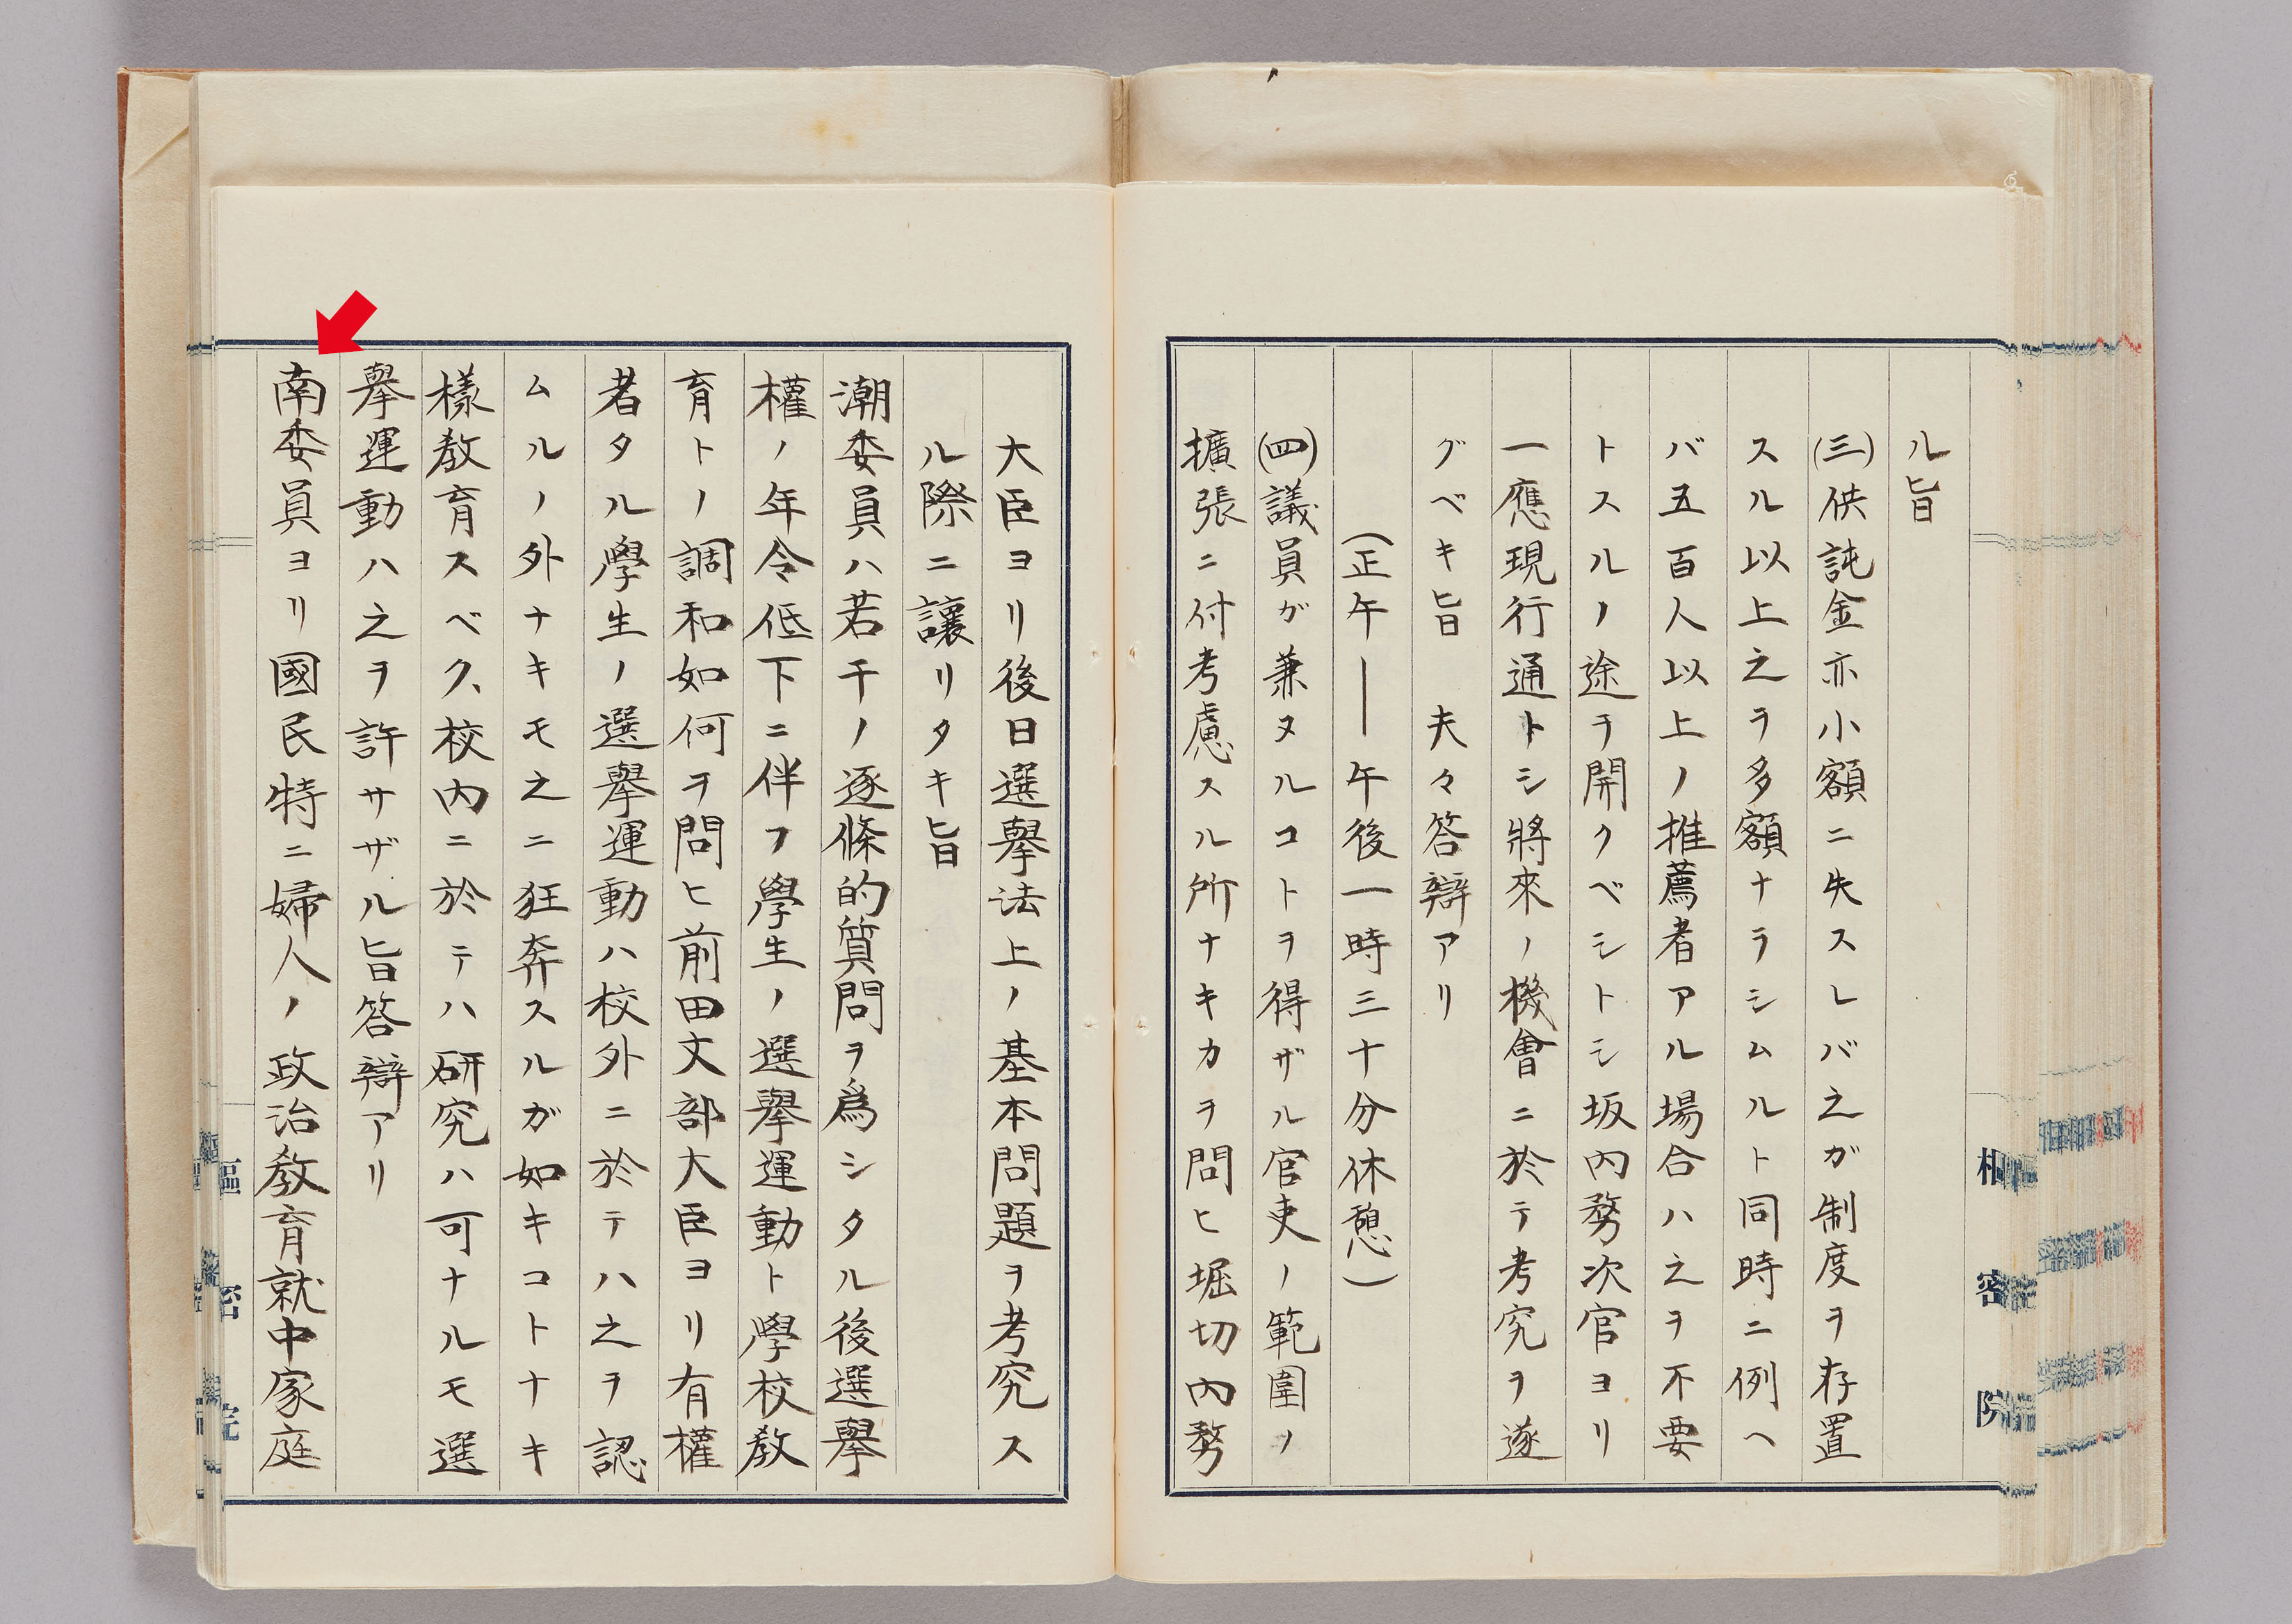 ル旨
(三)供託金亦小額ニ失スレバ之ガ制度ヲ存置
スル以上之ヲ多額ナラシムルト同時ニ例ヘ
バ五百人以上ノ推薦者アル場合ハ之ヲ不要
トスルノ途ヲ開クベシトシ坂内務次官ヨリ
一應現行通トシ將來ノ機會ニ於テ考究ヲ遂
グベキ旨 夫々答辯アリ
(正午——午後一時三十分休憩)
(四)議員ガ兼ヌルコトヲ得ザル官吏ノ範圍ノ
擴張ニ付考慮スル所ナキカヲ問ヒ堀切内務
樞密院
大臣ヨリ後日選擧法上ノ基本問題ヲ考究ス
ル際ニ讓リタキ旨
潮委員ハ若干ノ逐條的質問ヲ爲シタル後選擧
權ノ年令低下ニ伴フ學生ノ選擧運動ト學校教
育トノ調和如何ヲ問ヒ前田文部大臣ヨリ有權
者タル學生ノ選擧運動ハ校外ニ於テハ之ヲ認
ムルノ外ナキモ之ニ狂奔スルガ如キコトナキ
樣教育スベク、校内ニ於テハ研究ハ可ナルモ選
擧運動ハ之ヲ許サザル旨答辯アリ
南委員ヨリ國民特ニ婦人ノ政治教育就中家庭